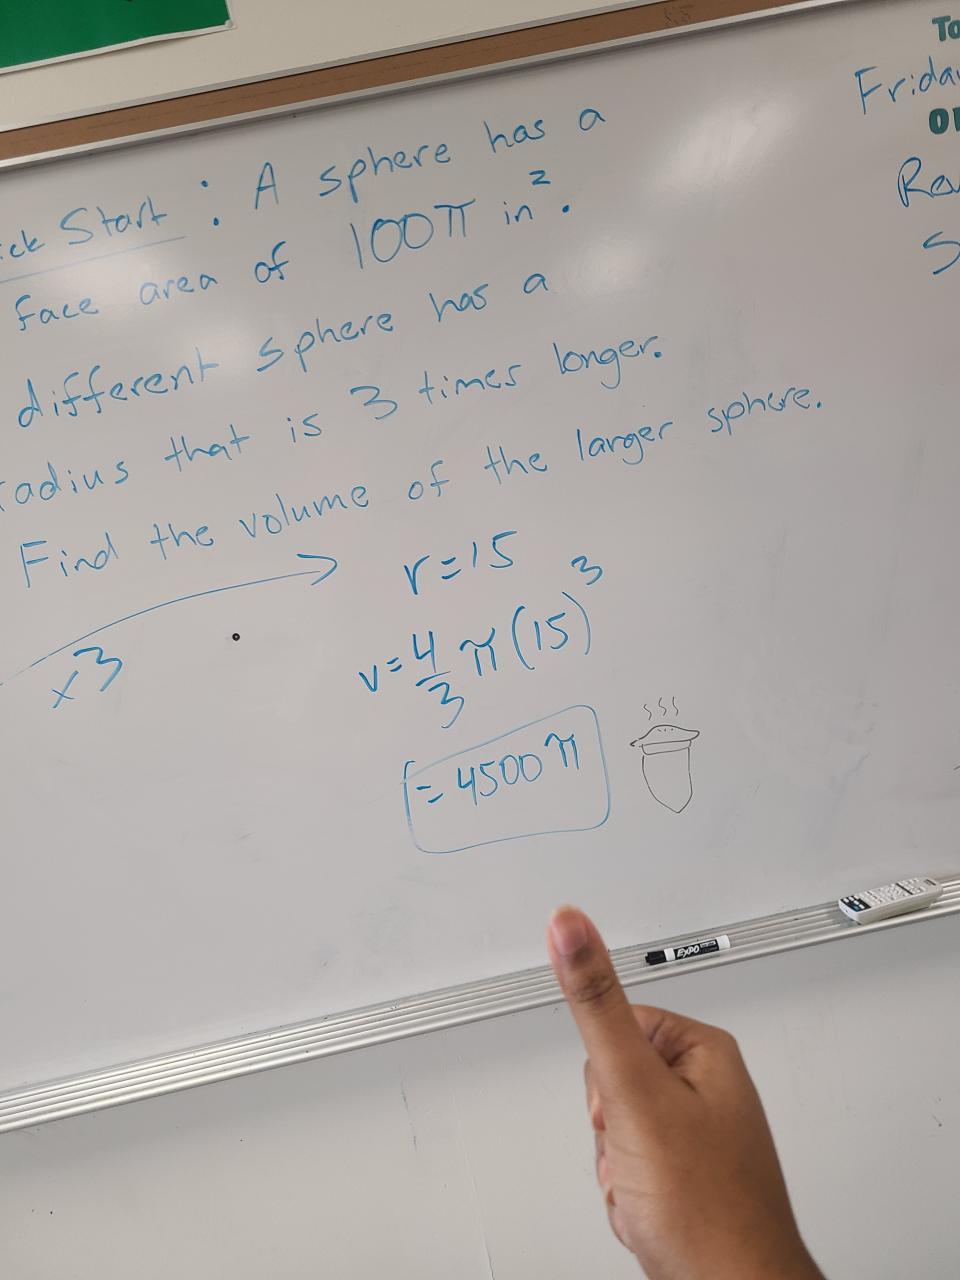 ick Start: A sphere has a
face area of 100π in².
different sphere has a
radius that is 3 times longer.
Find the volume of the larger sphere.
x3
r=15
v=4/3 π(15)³
=4500π
EXPO
To
Frida
Re
S